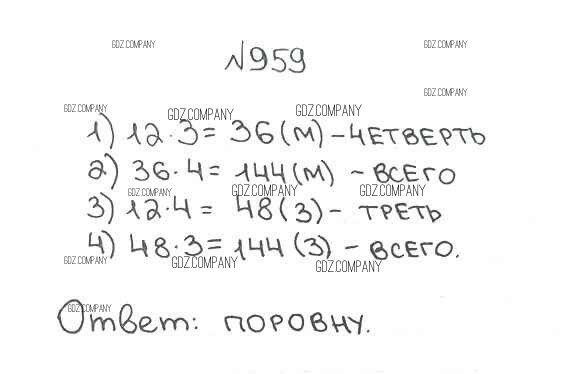 GDZ.COMPANY GDZ.COMPANY
№959
GDZ.COMPANY
GDZ.COMPANY GDZ.COMPANY GDZ.COMPANY
1) 12·3= 36(м) – ЧЕТВЕРТЬ
2) 36·4= 144(м) – ВСЕГО
GDZ.COMPANY GDZ.COMPANY GDZ.COMPANY
3) 12·4= 48(З) – ТРЕТЬ
4) 48·3=144(З) – ВСЕГО.
GDZ.COMPANY GDZ.COMPANY GDZ.COMPANY
GDZ.COMPANY
Ответ: ПОРОВНУ.